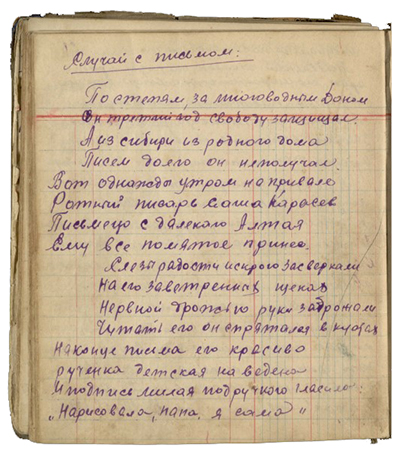 Случай с письмом.
По степям, за многоводным Доном
Он третий год свободу защищал.
А из сибири из родного дома
Писем долго он неполучал.
Вот однажды утром на привале
Ротный писарь Саша Карасев
Письмецо с далекого Алтая
Ему все помятое принес.
Слезы радости искрою засверкали
На его заветренных щеках
Нервной дрожью руки задрожали
Читать его он спрятался в кустах
На конце письма его красиво
рученка детская наведена
И подпись милая под ручкой гласила:
„Нарисовала, папа, я сама"